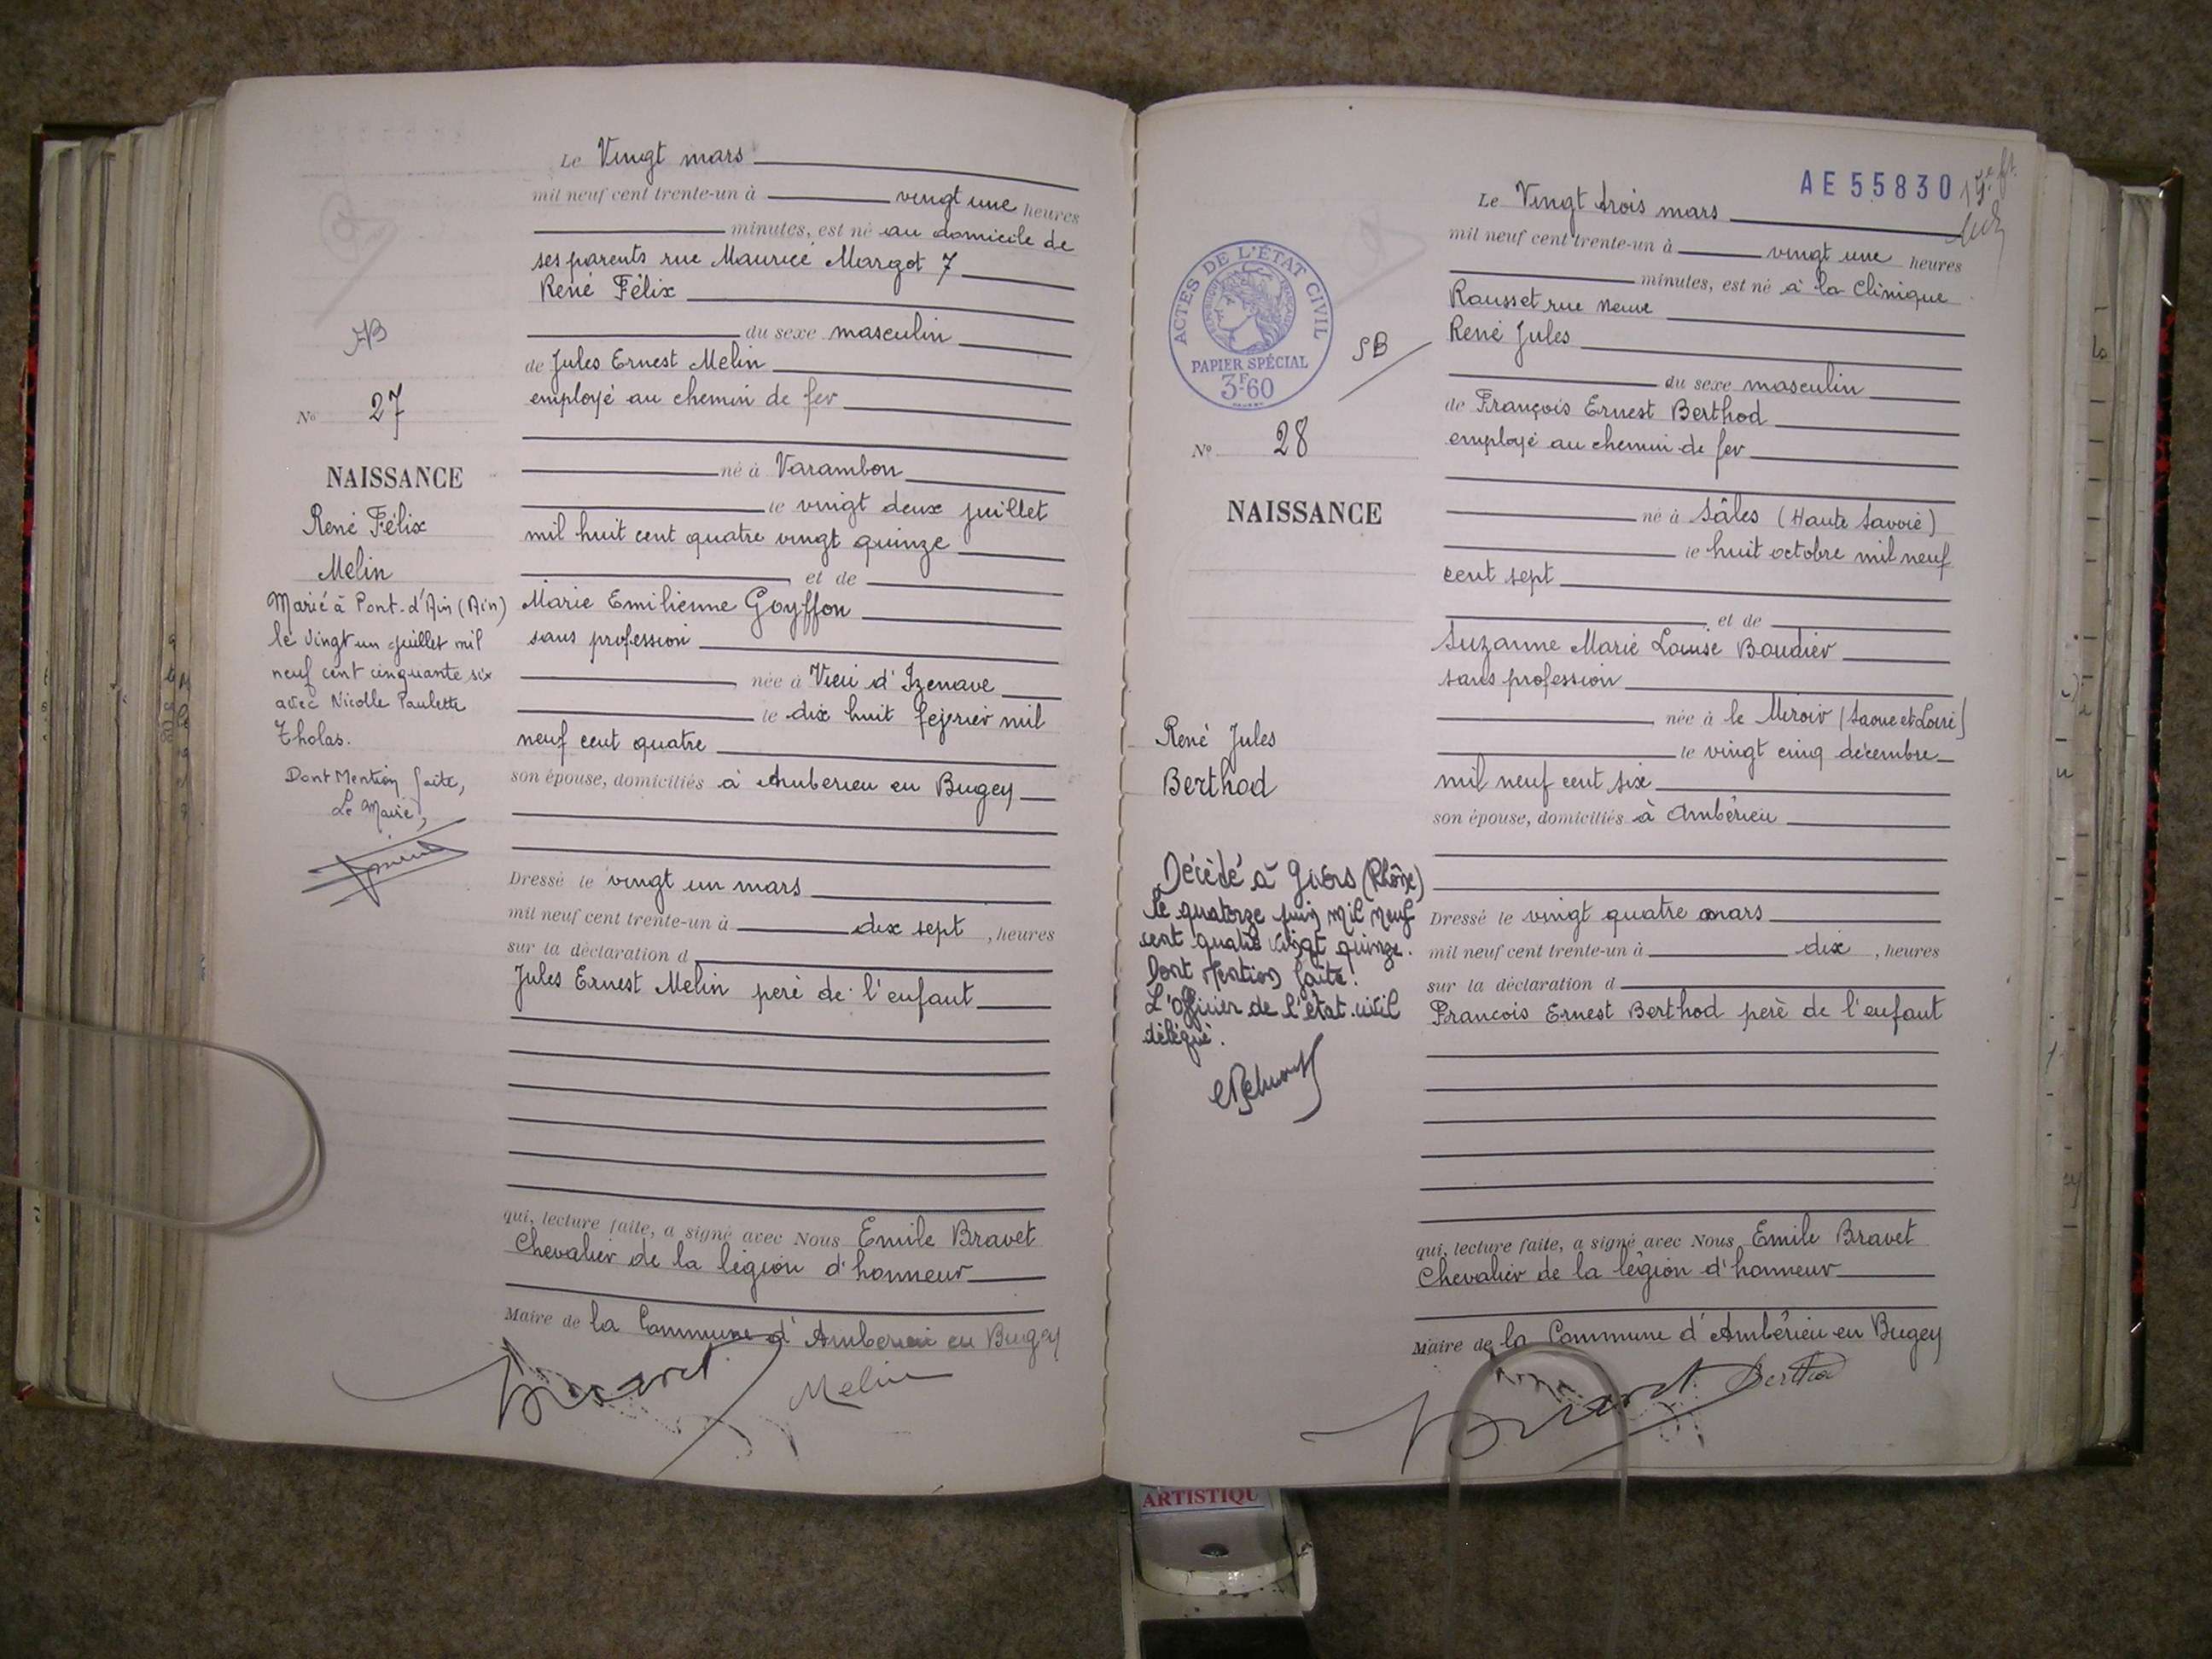 Le Vingt mars
mil neuf cent trente-un à vingt une heures
minutes, est né au domicile de
ses parents rue Maurice Margot 7
René Félix
du sexe masculin
de Jules Ernest Melin
employé au chemin de fer
né à Varambon
le vingt deux juillet
mil huit cent quatre vingt quinze
et de
Marie Emilienne Goyffon
sans profession
née à Vieu d'Izenave
le dix huit fejerier mil
neuf cent quatre
son épouse, domiciliés à Amberieu en Bugey
Dressé le vingt un mars
mil neuf cent trente-un à dix sept, heures
sur la déclaration d
Jules Ernest Melin père de l'enfant
qui, lecture faite, a signé avec Nous Emile Bravet
Chevalier de la légion d'honneur
Maire de la Commune d'Amberieu en Bugey
Melin
No 27
NAISSANCE
René Félix
Melin
Marié à Pont-d'Ain (Ain)
le vingt un juillet mil
neuf cent cinquante six
avec Nicolle Paulette
Tholas.
Dont Mention faite,
Le Maire,
AE 55830
Le Vingt trois mars
mil neuf cent trente-un à vingt une heures
minutes, est né à la Clinique
Rousset rue neuve
René Jules
du sexe masculin
de François Ernest Berthod
employé au chemin de fer
né à Sâles (Haute Savoie)
le huit octobre mil neuf
cent sept
et de
Suzanne Marie Louise Boudier
sans profession
née à le Miroir (Saone et Loire)
le vingt cinq décembre
mil neuf cent six
son épouse, domiciliés à Ambérieu
Dressé le vingt quatre mars
mil neuf cent trente-un à dix, heures
sur la déclaration d
Francois Ernest Berthod père de l'enfant
qui, lecture faite, a signé avec Nous Emile Bravet
Chevalier de la légion d'honneur
Maire de la Commune d'Ambérieu en Bugey
Berthod
ACTES DE L'ÉTAT CIVIL
PAPIER SPÉCIAL
3F60
SB
No 28
NAISSANCE
René Jules
Berthod
Décédé à Givors (Rhône)
le quatorze juin mil neuf
cent quatre vingt quinze.
Dont Mention faite.
L'Officier de l'état civil
délégué.
ARTISTIQU